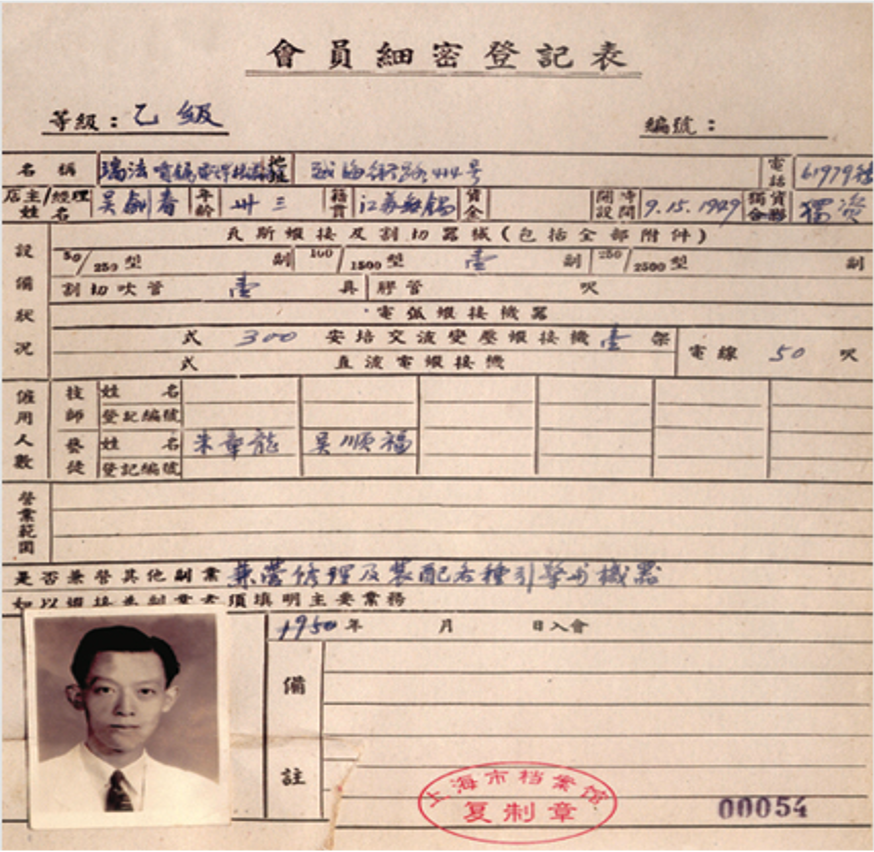 會員細密登記表
等級：乙級 編號：
名稱 瑞法電焊 地址 號 電話 61979
店主/經理姓名 吳春 年齡 卅三 籍貫 江蘇無錫 資金 開設時間 9.15.1949 獨資合夥 獨資
設備狀況
瓦斯蝦接及割切器械(包括全部附件)
50/250型 副 100/1500型 壹 副 250/2500型 副
割切吹管 壹 具 膠管 呎
電弧蝦接機器
式 300 安培交流變壓蝦接機 壹 架 電線 50 呎
式 直流電蝦接機
僱用人數
技師 姓名
登記編號
藝徒 姓名 朱章龍 吳順福
登記編號
營業範圍
是否兼營其他副業 兼營修理及裝配各種引擎 機器
須填明主要業務
1950年 月 日入會
備註
上海市档案馆
复制章
00054